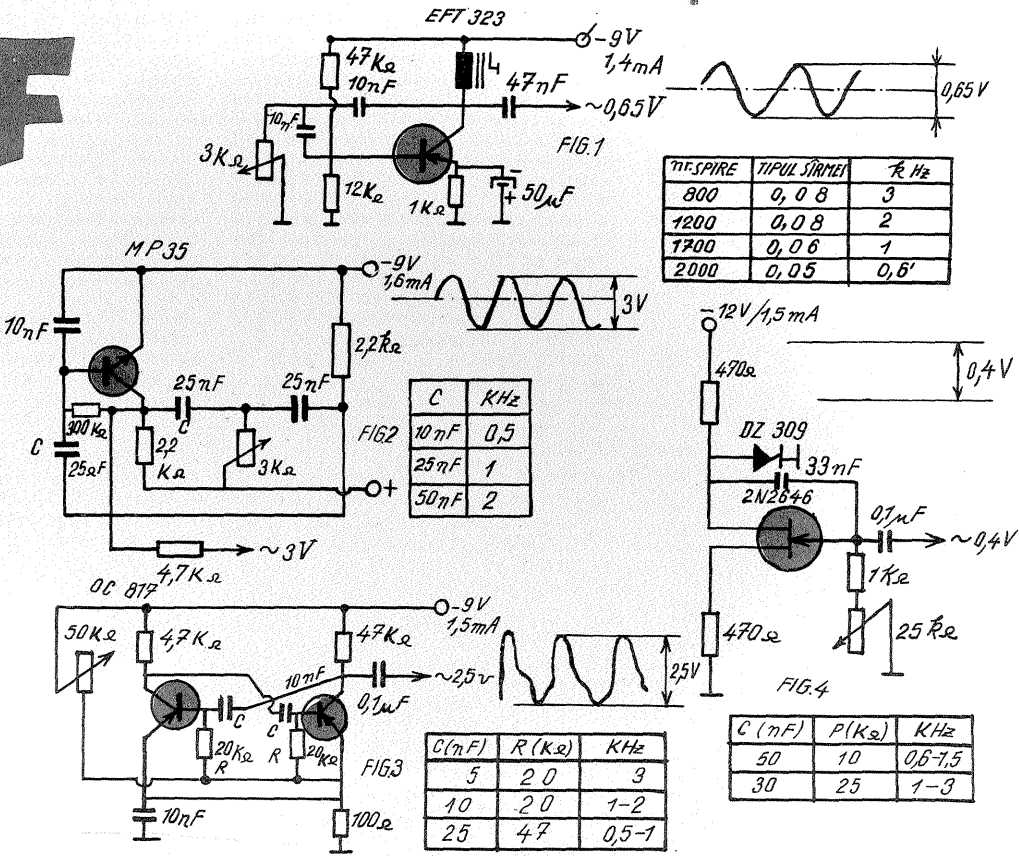 EFT 323
-9V
1,4mA
47KΩ
10nF
L
47nF
~0,65V
10nF
3KΩ
12KΩ
1KΩ
-
+
50µF
FIG.1
0,65V
nr.SPIRE TIPUL SÎRMEI kHz
800 0,08 3
1200 0,08 2
1700 0,06 1
2000 0,05 0,6
MP35
-9V
1,6mA
3V
10nF
2,2kΩ
25nF
25nF
C
300KΩ
C
25nF
2,2
KΩ
3KΩ
FIG.2
+
4,7KΩ
~3V
C KHz
10nF 0,5
25nF 1
50nF 2
-12V/1,5mA
0,4V
470Ω
DZ 309
33nF
2N2646
0,1µF
~0,4V
1KΩ
25kΩ
470Ω
FIG.4
C (nF) P(KΩ) KHz
50 10 0,6-1,5
30 25 1-3
OC 817
-9V
1,5mA
50KΩ
4,7KΩ
47KΩ
10nF
~2,5V
0,1µF
C
C
20KΩ
R
R
20KΩ
10nF
100Ω
FIG3
2,5V
C(nF) R(KΩ) KHz
5 20 3
10 20 1-2
25 47 0,5-1